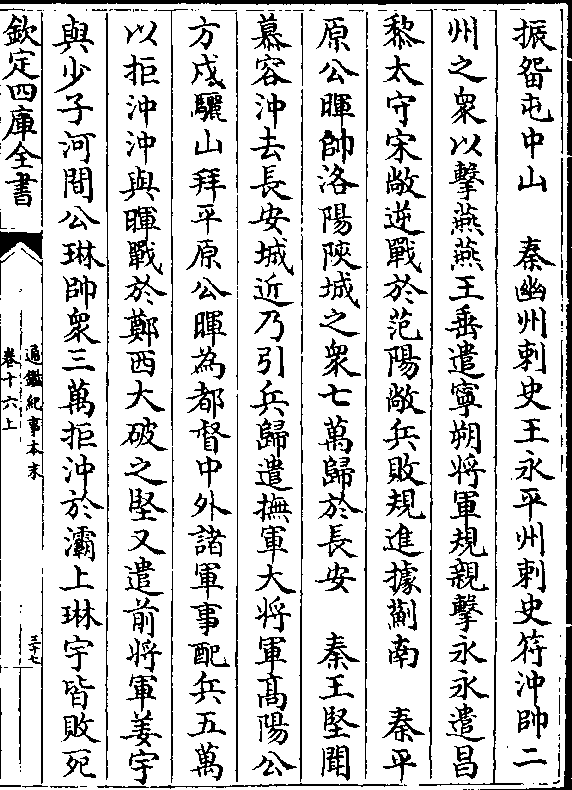 振畱屯中山　秦幽州刺史王永平州刺史符沖帥二
州之衆以擊燕燕王垂遣寧朔將軍規親擊永永遣昌
黎太守宋敞逆戰於范陽敞兵敗規進據薊南　秦平
原公暉帥洛陽陜城之衆七萬歸於長安　秦王堅聞
慕容沖去長安城近乃引兵歸遣撫軍大將軍髙陽公
方戍驪山拜平原公暉為都督中外諸軍事配兵五萬
以拒沖沖與暉戰於鄭西大破之堅又遣前將軍姜宇
與少子河間公琳帥衆三萬拒沖於灞上琳宇皆敗死
欽定四庫全書
通鑑紀事本末
卷十六上
三十七